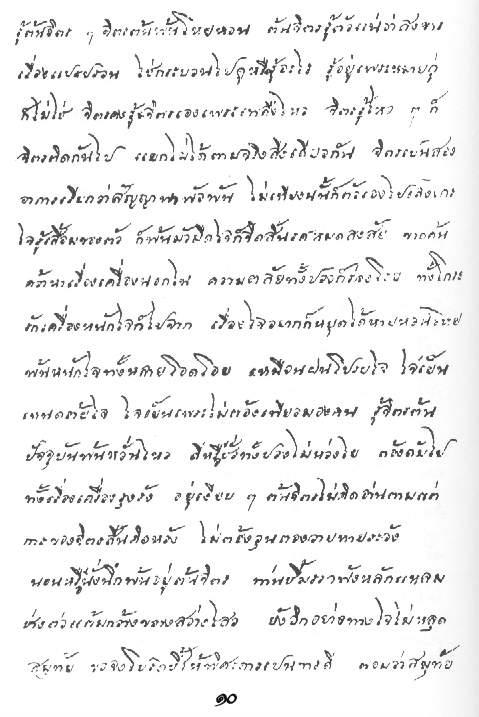 รู้ต้นจิตร ๆ จิตรต้นพ้นโหยหวน ต้นจิตรรู้ตัวแน่ว่าสังขาร
เรื่องแปรปรวน ใช่กระบวนไปดูหรือรู้อะไร รู้อยู่เพราะหมายคู่
ก็ไม่ใช่ จิตรคงรู้จิตรเองเพราะเพลงไหว จิตรรู้ไหว ๆ ก็
จิตรติดกันไป แยกไม่ได้ตามจริงสิ่งเดียวกัน จิตรเปนสอง
อาการเรียกว่าสัญญาพาพัวพัน ไม่เที่ยงนั้นก็ตัวเองไปเล็งใคร
ใจรู้เสื่อมของตัว ก็พ้นมัวมืดใจก็จืดสิ้นรสหมดสงสัย ขาดค้น
คว้าหาเรื่องเครื่องนอกใน ความอาลัยทั้งปวงก็ร่วงโรย ทั้งโกรธ
รักเครื่องหนักใจก็ไปจาก เรื่องใจอยากก็หยุดได้หายหวนโหย
พ้นหนักใจทั้งหลายโอดโอย เหมือนฝนโปรยใจ ใจเย็น
เห็นด้วยใจ ใจเย็นเพราะไม่ต้องเที่ยวมองคน รู้จิตรต้น
ปัจจุบันพ้นหวั่นไหว ดีหรือชั่วทั้งปวงไม่ห่วงใย ต้องดับไป
ทั้งเรื่องเครื่องรุงรัง อยู่เงียบ ๆ ต้นจิตรไม่คิดอ่านตามแต่
การของจิตรสิ้นคิดหวัง ไม่ต้องวุ่นต้องวายหายระวัง
นอนหรือนั่งนึกพ้นอยู่ต้นจิตร ท่านชี้มรรคฟังหลักแหลม
ช่างต่อแต้มกว้างขวางสว่างไสว ยังอีกอย่างทางใจไม่หลุด
สมุทัย ขอจงโปรดชี้ให้พิศดารเปนทางดี ตอบว่าสมุทัย
๑๐